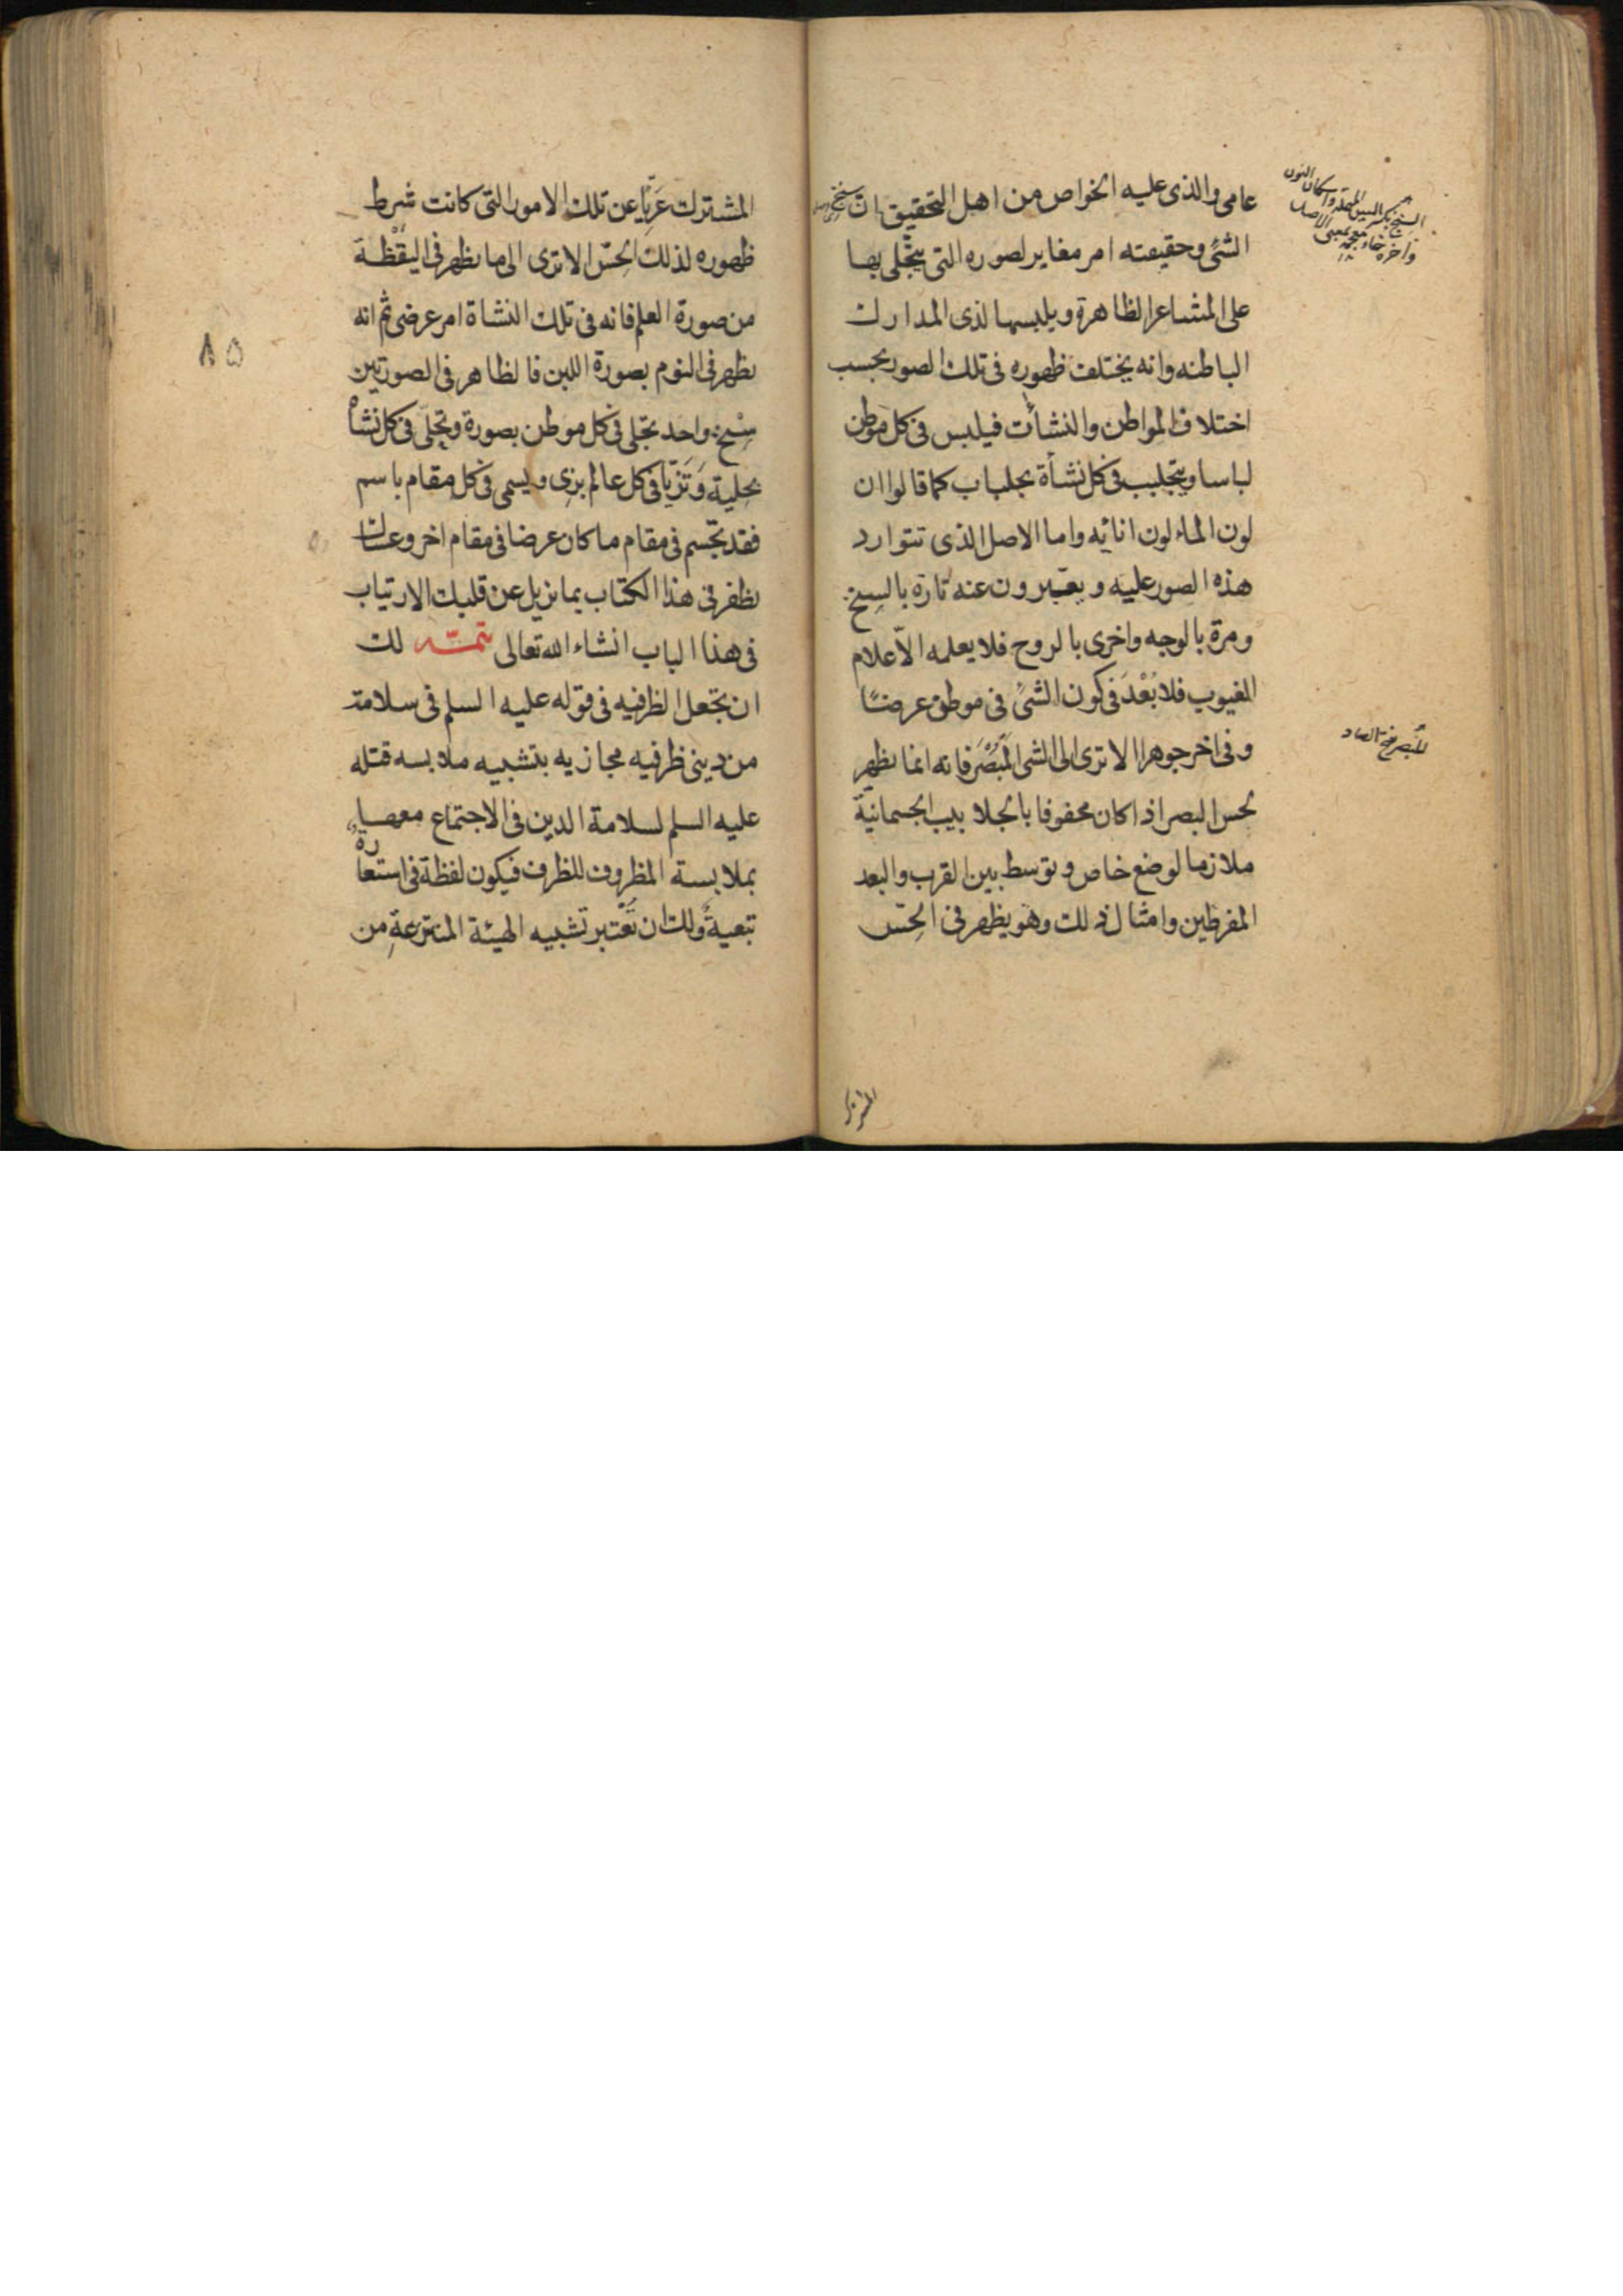 عامى والذى عليه الخواص من اهل التحقيق ان سنخ
الشئ وحقيقته امر مغاير لصوره التى يتجلى بها
على المشاعر الظاهرة ويلبسها لذى المدارك
الباطنه وانه يختلف ظهوره فى تلك الصور بحسب
اختلاف المواطن والنشآت فيلبس فى كل موطن
لباسا ويتجلبب فى كل نشأة بجلباب كما قالوا ان
لون الماء لون انائه واما الاصل الذى تتوارد
هذه الصور عليه ويعبرون عنه تارة بالسنخ
ومرة بالوجه واخرى بالروح فلا يعلمه الا علام
الغيوب فلا بُعْدَ فى كون الشئ فى موطن عرضًا
وفى اخر جوهرا الا ترى الى الشى المُبْصَرَ فانه انما يظهر
لحس البصر اذا كان محفوفا بالجلابيب الجسمانية
ملازما لوضع خاص وتوسط بين القرب والبعد
المفرطين وامثال ذلك وهو يظهر فى الحِسّ
السنخ بكسر السين المهملة واسكان النون
واخره خاء معجمة بمعنى الاصل
المبصر بفتح الصاد
المشترك
المشترك عَرِيًّا عن تلك الامور التى كانت شرط
ظهوره لذلك الحِسّ الا ترى الى ما يظهر فى اليقظة
من صورة العلم فانه فى تلك النشاة امر عرضى ثم انه
يظهر فى النوم بصورة اللبن فالظاهر فى الصورتين
سِنْخ واحد تجلى فى كل موطن بصورة وتحلى فى كل نشأة
بحلية وَتَزَيّا فى كل عالم بزى ويسمى فى كل مقام باسم
فقد تجسم فى مقام ما كان عرضا فى مقام اخر وعساك
تظفر فى هذا الكتاب بما يزيل عن قلبك الارتياب
فى هذا الباب انشاء الله تعالى تتمّه لك
ان تجعل الظرفيه فى قوله عليه السلم فى سلامة
من دينى ظرفيه مجازيه بتشبيه ملابسه قتله
عليه السلم لسلامة الدين فى الاجتماع معها
بملابسة المظروف للظرف فيكون لفظة فى استعارة
تبعيةً ولك ان تَعْتَبر تشبيه الهيئة المنتزعةِ من
۸۵